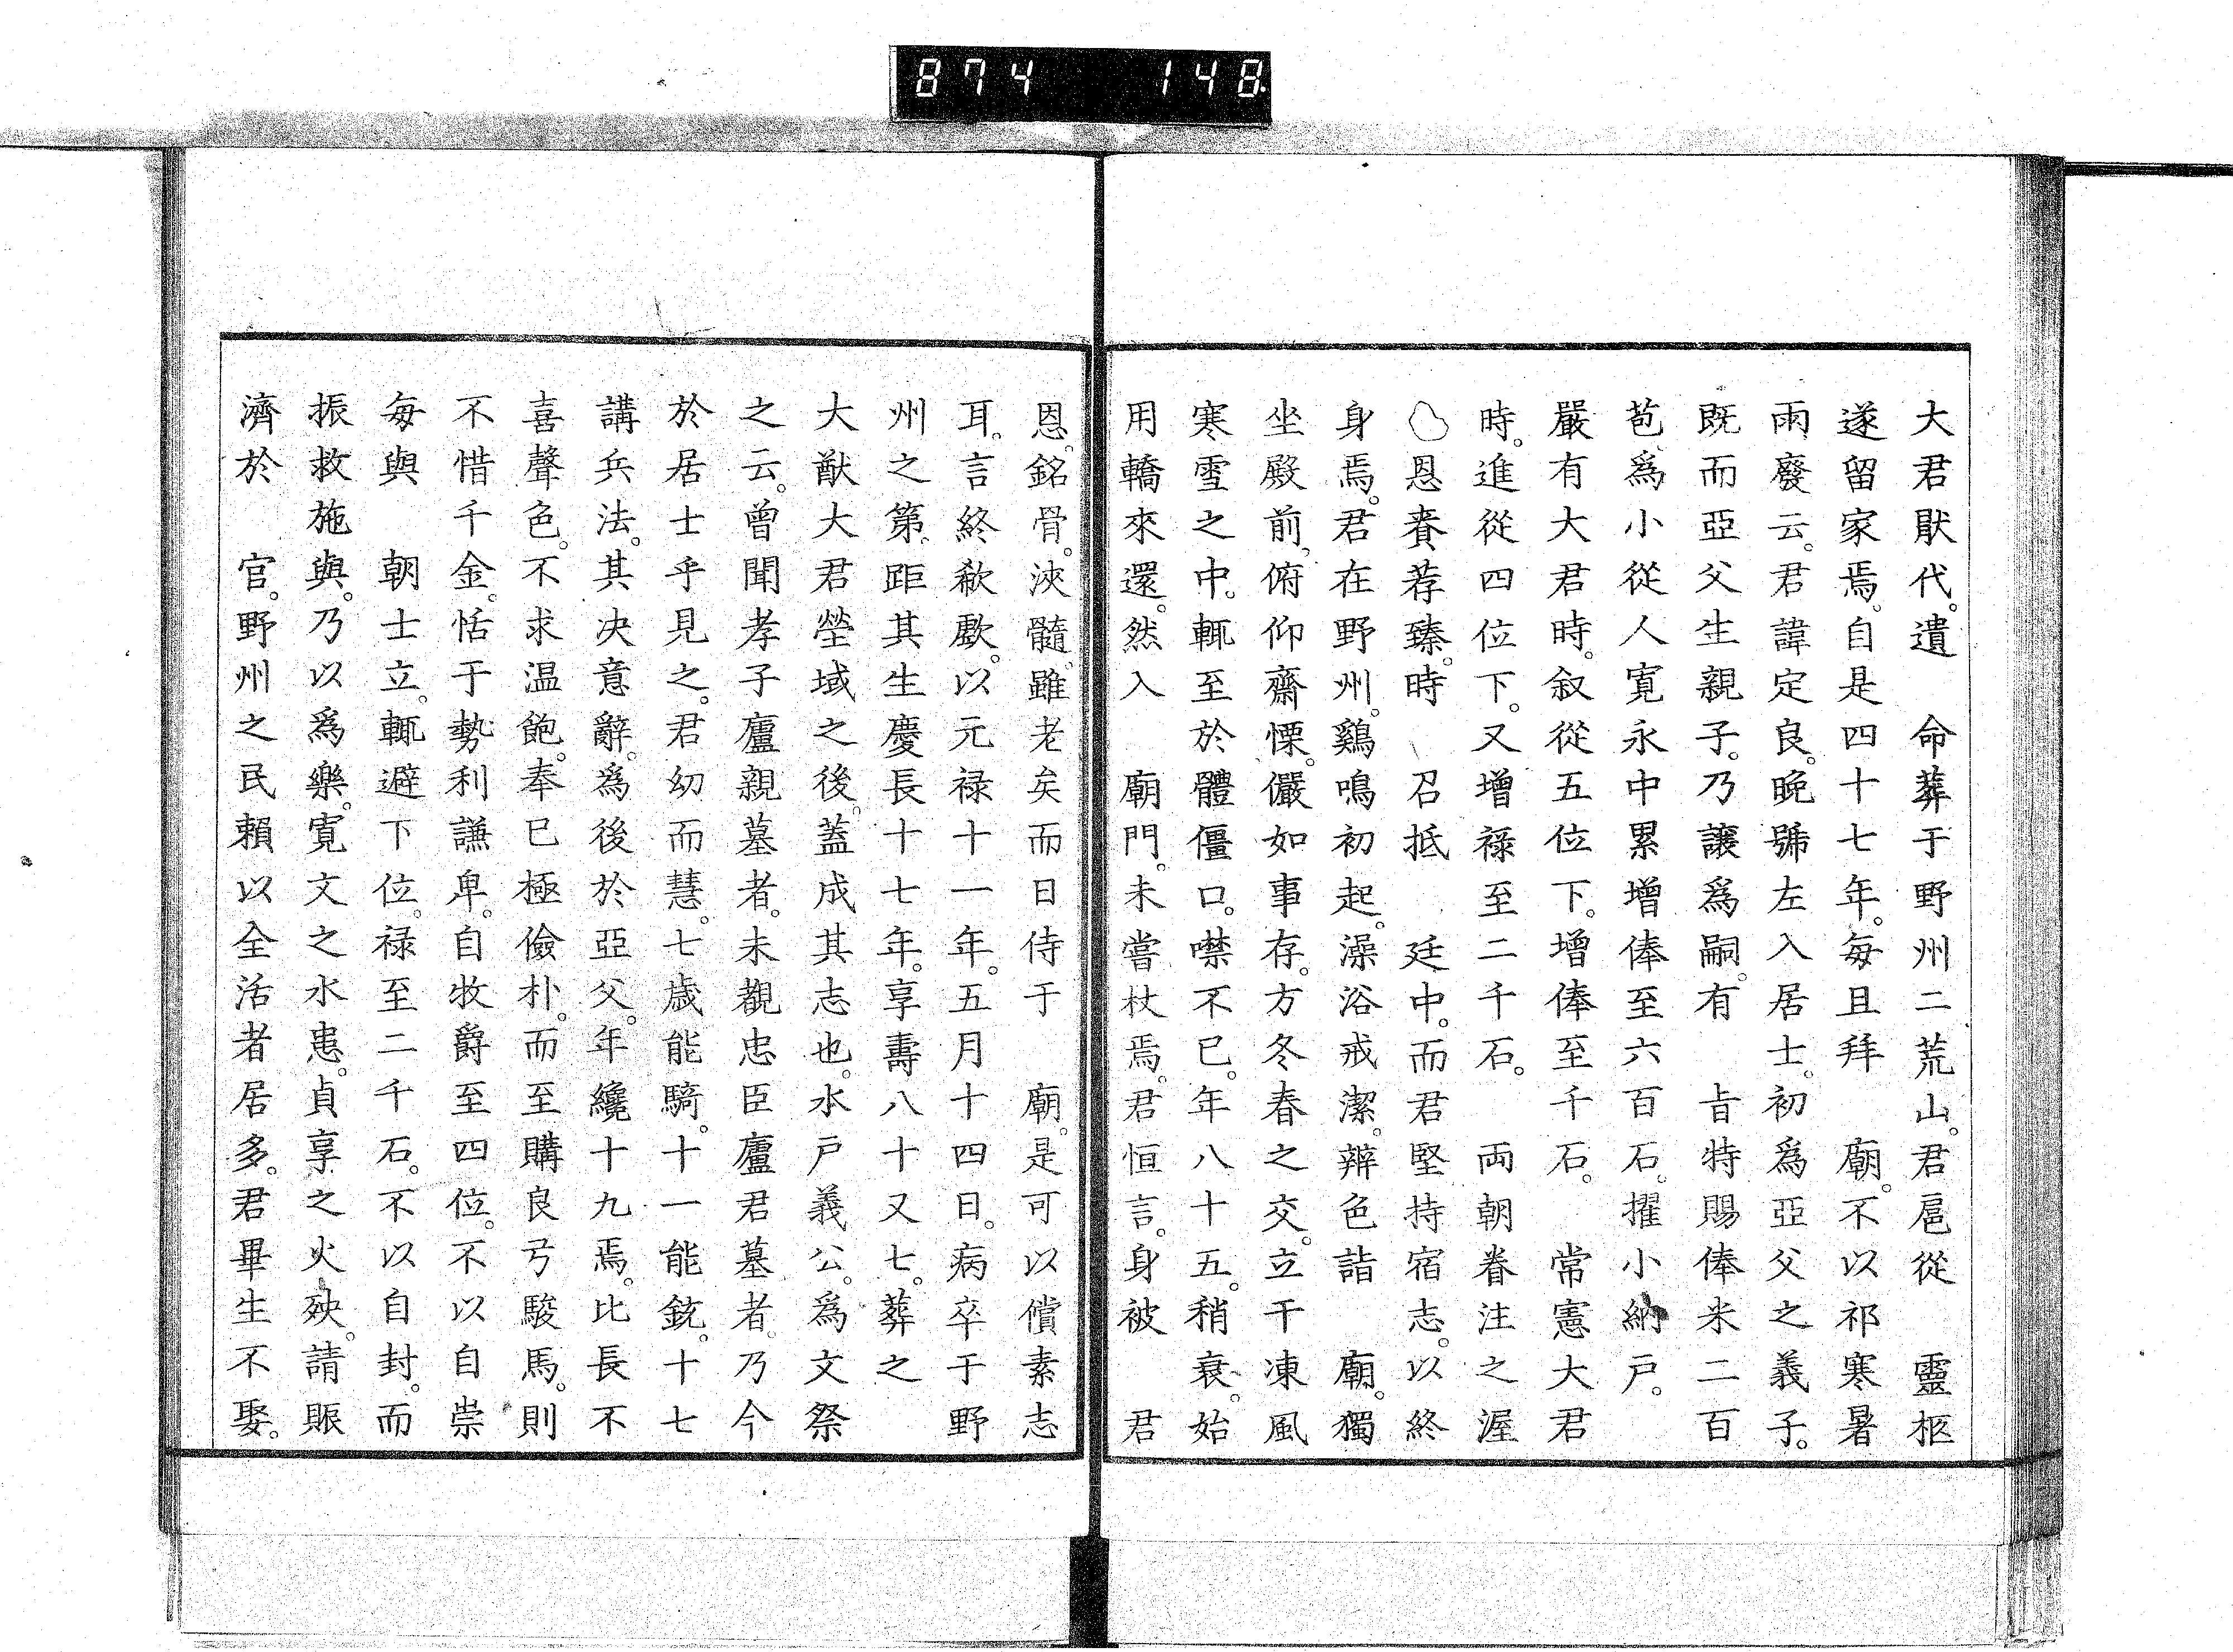 874 148
大君厭代。遺 命葬于野州二荒山。君扈從 靈柩
遂留家焉。自是四十七年。每且拜 廟。不以祁寒暑
雨廢云。君諱定良。晚號左入居士。初爲亞父之義子。
既而亞父生親子。乃讓爲嗣。有 旨特賜俸米二百
苞、爲小從人寬永中累增俸至六百石。擢小納戶。
嚴有大君時。叙從五位下。增俸至千石。 常憲大君
時。進從四位下。又增祿至二千石。 両朝眷注之渥
恩賚荐臻。時 召抵 廷中。而君堅持宿志。以終
身焉。君在野州。鷄鳴初起。澡浴戒潔。辨色詣 廟。獨
坐殿前、俯仰齋慄。儼如事存。方冬春之交。立干凍風
寒雪之中。輒至於體僵口。噤不已。年八十五。稍衰。始
用轎來還。然入 廟門。未嘗杖焉。君恒言。身被 君
恩。銘骨。浹髓。雖老矣而日侍于 廟。是可以償素志
耳。言終欷歔。以元禄十一年。五月十四日。病卒于野
州之第。距其生慶長十七年。享壽八十又七。葬之
大猷大君塋域之後。蓋成其志也。水戶義公。爲文祭
之云。曾聞孝子廬親墓者。未觀忠臣廬君墓者。乃今
於居士乎見之。君幼而慧。七歲能騎。十一能銃。十七
講兵法。其决意辭。爲後於亞父。年纔十九焉。比長不
喜聲色。不求温飽。奉已極儉朴。而至購良弓駿馬。則
不惜千金。恬于勢利謙卑。自牧爵至四位。不以自崇
每與 朝士立。輒避下位。禄至二千石。不以自封。而
振救施與。乃以爲樂。寬文之水患。貞享之火殃。請賑
濟於 官。野州之民賴以全活者居多。君畢生不娶。